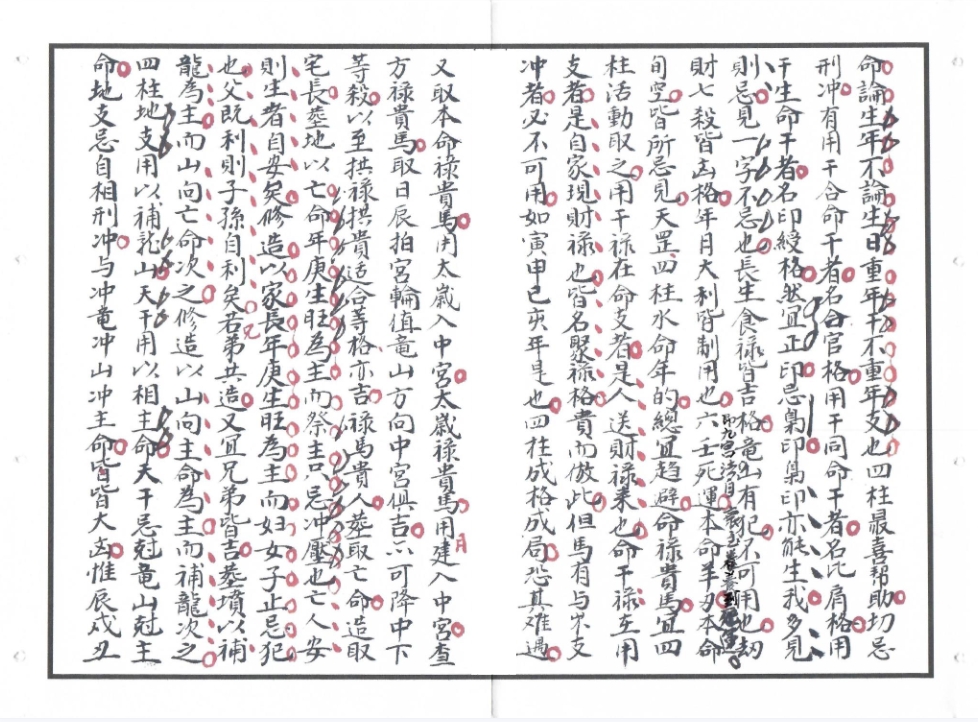 命論生年不論生日重年干不重年支也四柱最喜幫助切忌
刑冲有用干合命干者名合官格用干同命干者名比肩格用
干生命干者名印綬格然宜正印忌梟印梟印亦能生我多見
則忌見一字不忌也長生食祿皆吉格竜山有犯不可用也劫
財七殺皆凶格年月大利皆制用也六壬死運本命羊刃本命
旬空皆所忌見天罡四柱水命年的總宜趨避命祿貴馬宜四
柱活動取之用干祿在命支者是人送財祿来也命干祿在用
支者是自家現財祿也皆名聚祿格貴而倣此但馬有与坐支
冲者必不可用如寅申巳亥年是也四柱成格成局恐其难過
又取本命祿貴馬用太歲入中宮太歲祿貴馬用建入中宮查
月
方祿貴馬取日辰拍宮輪值竜山方向中宮俱吉不可降中下
等殺以至拱祿拱貴适合等格亦吉祿馬貴人葬取亡命造取
宅長葬地以亡命年庚生旺為主而祭主只忌冲壓也亡人安
則生者自安矣修造以家長年庚生旺為主而妇女子止忌犯
也父既利則子孫自利矣若弟共造又宜兄弟皆吉葬墳以補
兄
龍為主而山向亡命次之修造以山向主命為主而補龍次之
四柱地支用以補龍山天干用以相主命天干忌尅竜山尅主
命地支忌自相刑冲与冲竜冲山冲主命皆皆大凶惟辰戌丑